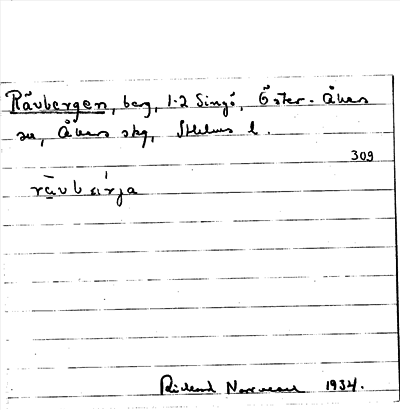 Rävbergen, berg, 1-2 Singö, Öster-Åkers
sn, Åkers skg, Sthlms l.
309
rävbærja
Rickard Norrman 1934.